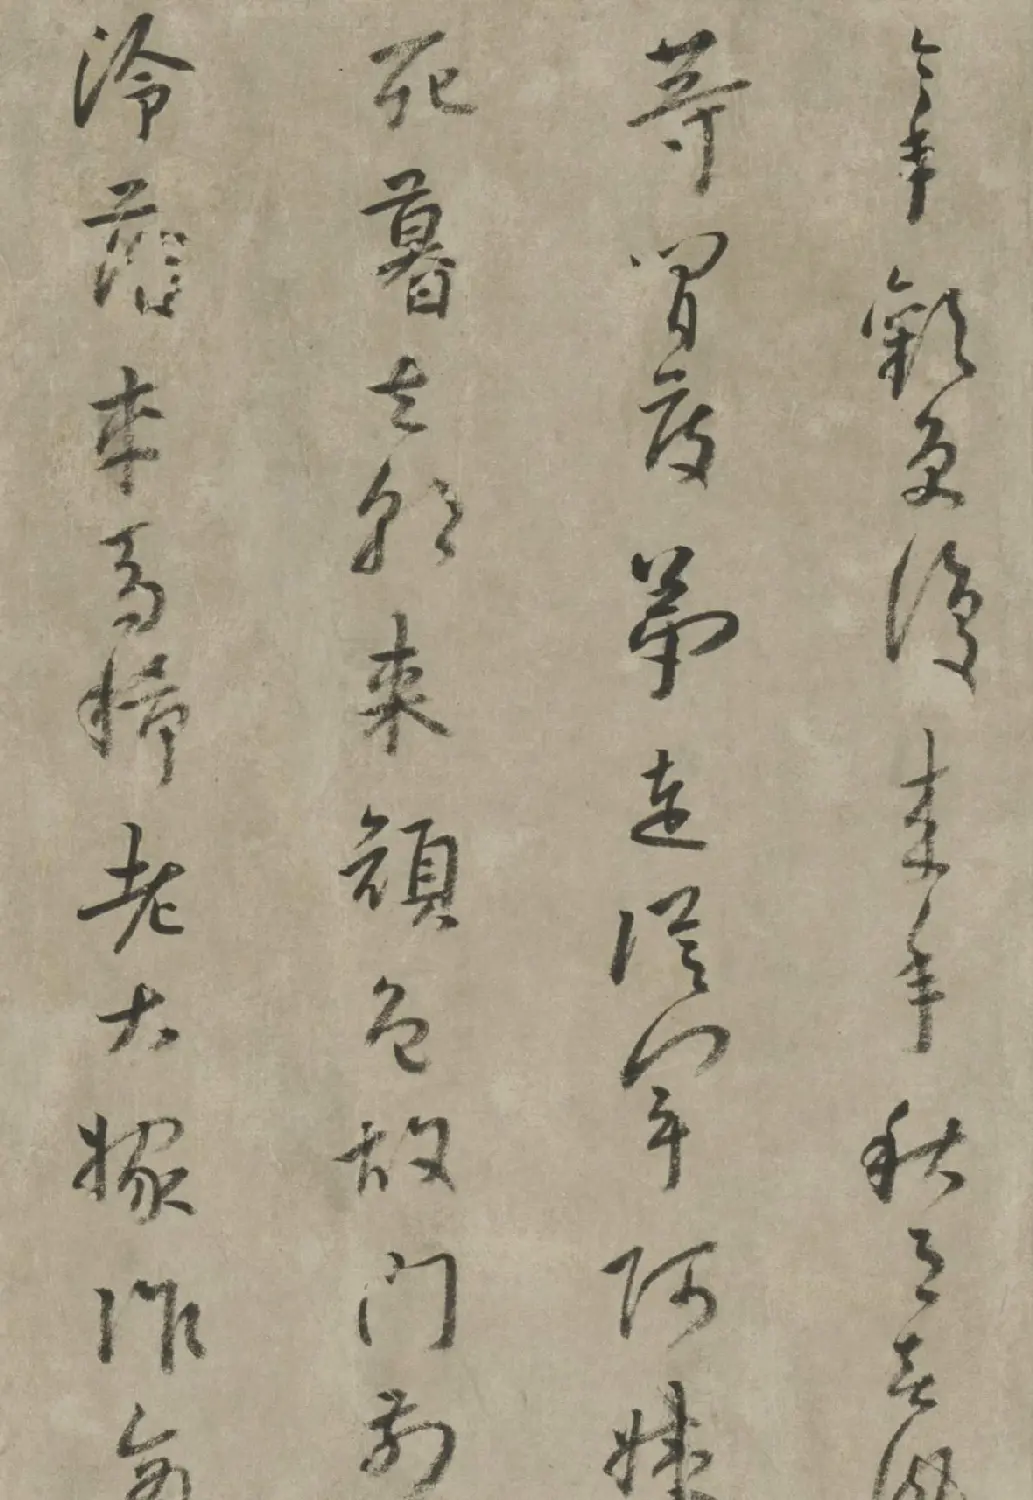 今年歡笑復来年秋月春風
等閒度弟走從軍阿姨
死暮去朝来顔色故門前
冷落車馬稀老大嫁作商